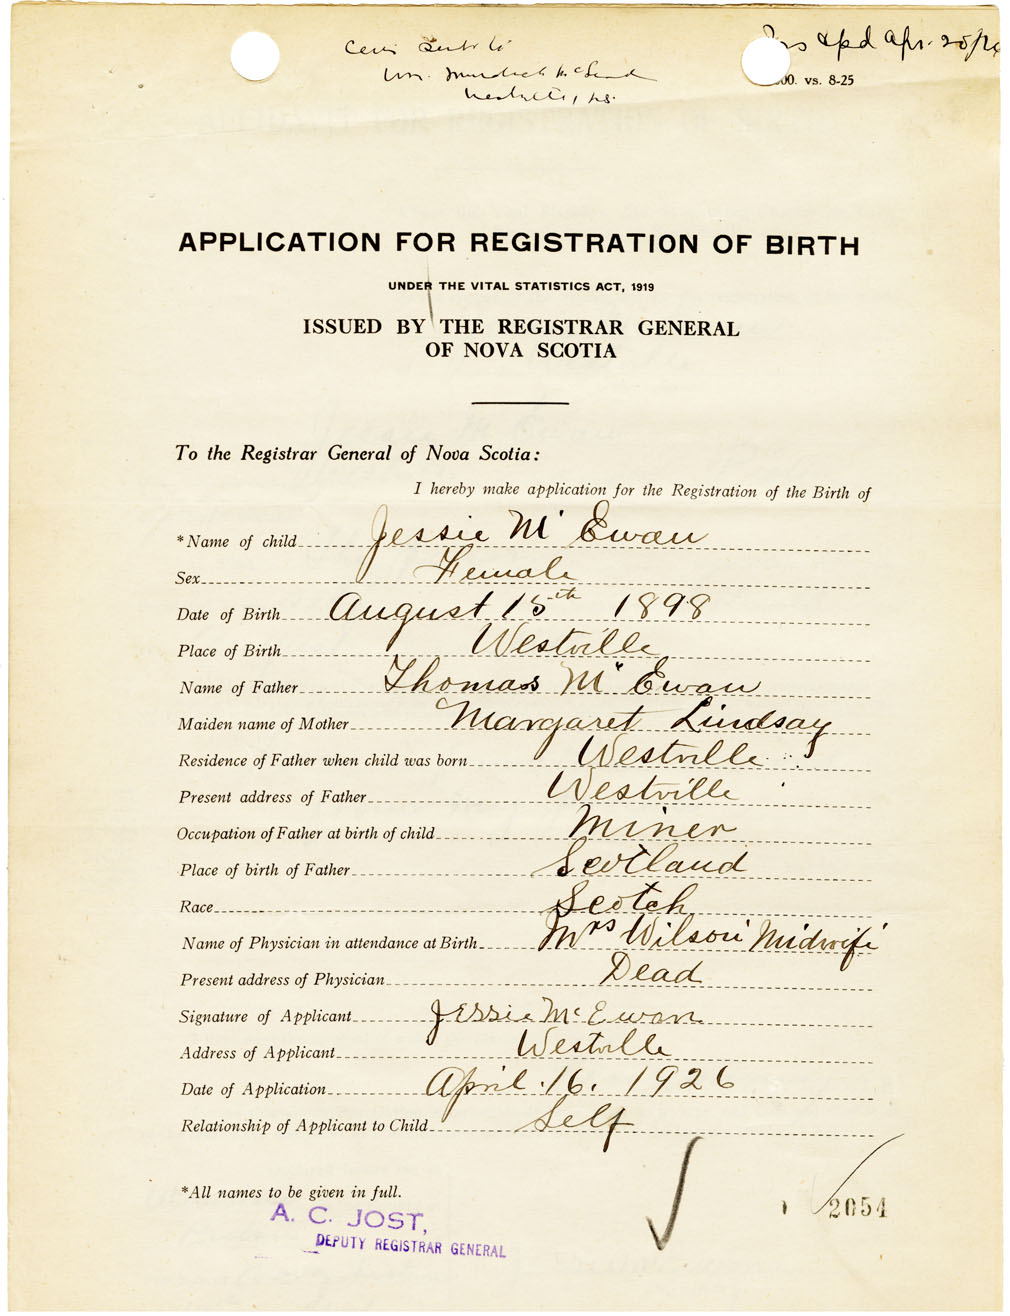 Cert. sent to
Mrs. Murdock McLeod
Westville, N.S.
& pd Apr. 20/26
00. vs. 8-25
APPLICATION FOR REGISTRATION OF BIRTH
UNDER THE VITAL STATISTICS ACT, 1919
ISSUED BY THE REGISTRAR GENERAL
OF NOVA SCOTIA
To the Registrar General of Nova Scotia:
I hereby make application for the Registration of the Birth of
*Name of child Jessie Mc Ewan
Sex Female
Date of Birth August 15th 1898
Place of Birth Westville
Name of Father Thomas Mc Ewan
Maiden name of Mother Margaret Lindsay
Residence of Father when child was born Westville
Present address of Father Westville
Occupation of Father at birth of child Miner
Place of birth of Father Scotland
Race Scotch
Name of Physician in attendance at Birth Mrs Wilson Midwife
Present address of Physician Dead
Signature of Applicant Jessie McEwan
Address of Applicant Westville
Date of Application April. 16. 1926
Relationship of Applicant to Child Self
*All names to be given in full.
2054
A. C. JOST,
DEPUTY REGISTRAR GENERAL